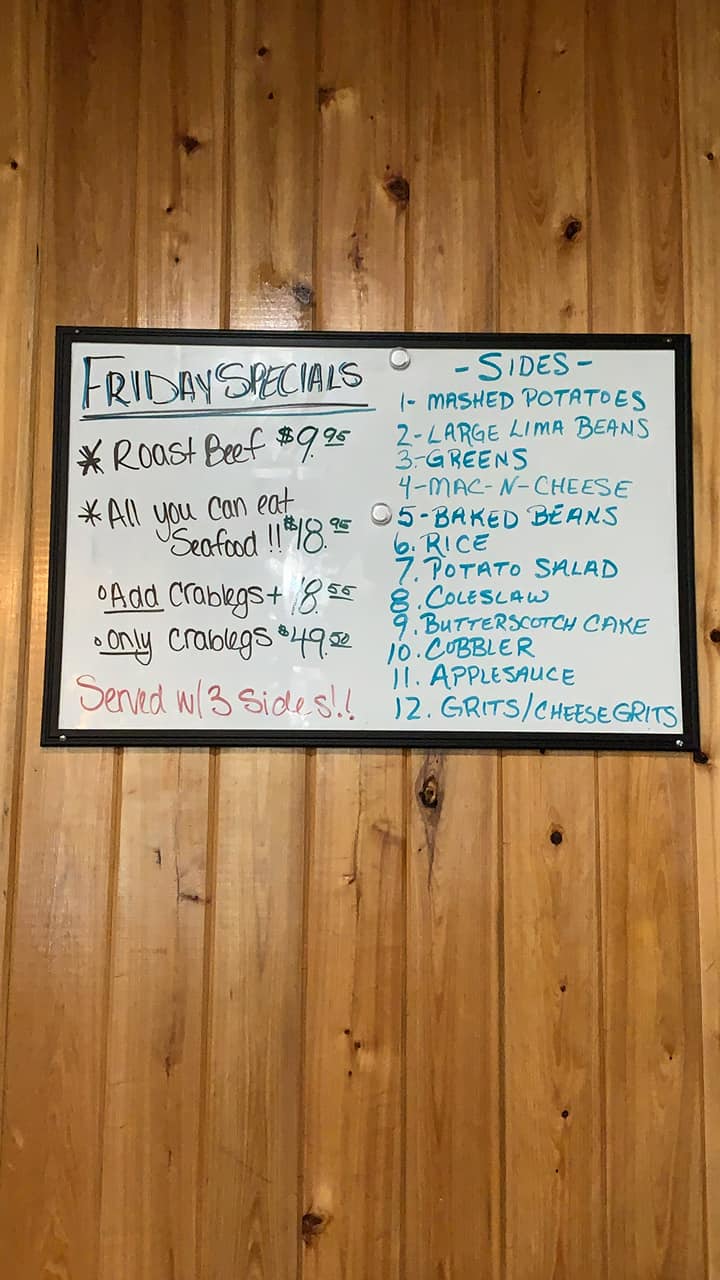 FRIDAY SPECIALS
* Roast Beef $9.95
* All you can eat
Seafood !! $18.95
• Add Crablegs + 18.55
• only crablegs $49.50
Served w/3 Sides!!
- SIDES -
1- MASHED POTATOES
2- LARGE LIMA BEANS
3.-GREENS
4-MAC-N-CHEESE
5-BAKED BEANS
6. RICE
7. POTATO SALAD
8. COLESLAW
9. BUTTERSCOTCH CAKE
10. COBBLER
11. APPLESAUCE
12. GRITS/CHEESE GRITS